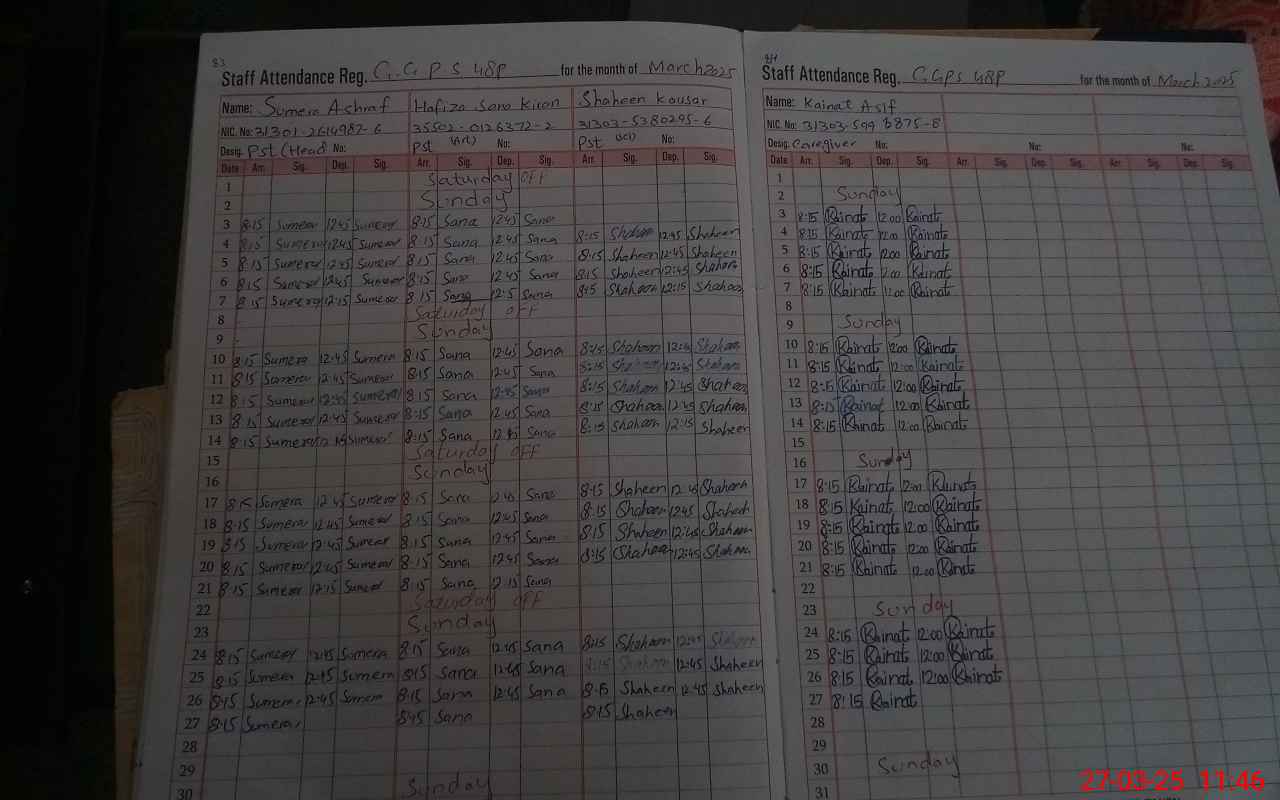 83
Staff Attendance Reg. G.G.P.S 48P for the month of March 2025
Name: Sumera Ashraf Hafiza Sana Kiran Shaheen Kousar
NIC. No: 31301-2614987-6 35502-0126372-2 31303-5380295-6
Desig. Pst (Head No: Pst (Art) No: Pst (Sci) No:
Date Arr. Sig. Dep. Sig. Arr. Sig. Dep. Sig. Arr. Sig. Dep. Sig.
1 Saturday OFF
2 Sunday
3 8:15 Sumera 12:45 Sumera 8:15 Sana 12:45 Sana
4 8:15 Sumera 12:45 Sumera 8:15 Sana 12:45 Sana 8:15 Shaheen 12:45 Shaheen
5 8:15 Sumera 12:45 Sumera 8:15 Sana 12:45 Sana 8:15 Shaheen 12:45 Shaheen
6 8:15 Sumera 12:45 Sumera 8:15 Sana 12:45 Sana 8:15 Shaheen 12:45 Shaheen
7 8:15 Sumera 12:15 Sumera 8:15 Sana 12:5 Sana 8:15 Shaheen 12:15 Shaheen
8 Saturday off
9 Sunday
10 8:15 Sumera 12:45 Sumera 8:15 Sana 12:45 Sana 8:15 Shaheen 12:45 Shaheen
11 8:15 Sumera 12:45 Sumera 8:15 Sana 12:45 Sana 8:15 Shaheen 12:45 Shaheen
12 8:15 Sumera 12:45 Sumera 8:15 Sana 12:45 Sana 8:15 Shaheen 12:45 Shaheen
13 8:15 Sumera 12:45 Sumera 8:15 Sana 12:45 Sana 8:15 Shaheen 12:45 Shaheen
14 8:15 Sumera 12:15 Sumera 8:15 Sana Sana 8:15 Shaheen 12:15 Shaheen
15 Saturday off
16 Sunday
17 8:15 Sumera 12:45 Sumera 8:15 Sana 12:45 Sana 8:15 Shaheen 12:45 Shaheen
18 8:15 Sumera 12:45 Sumera 8:15 Sana 12:45 Sana 8:15 Shaheen 12:45 Shaheen
19 8:15 Sumera 12:45 Sumera 8:15 Sana 12:45 Sana 8:15 Shaheen 12:45 Shaheen
20 8:15 Sumera 12:45 Sumera 8:15 Sana 12:45 Sana 8:15 Shaheen 12:45 Shaheen
21 8:15 Sumera 12:15 Sumera 8:15 Sana 12:15 Sana
22 Saturday off
23 Sunday
24 8:15 Sumera 12:45 Sumera 8:15 Sana 12:45 Sana 8:15 Shaheen 12:45 Shaheen
25 8:15 Sumera 12:45 Sumera 8:15 Sana 12:45 Sana 8:15 Shaheen 12:45 Shaheen
26 8:15 Sumera 12:45 Sumera 8:15 Sana 12:45 Sana 8:15 Shaheen 12:45 Shaheen
27 8:15 Sumera 8:15 Sana 8:15 Shaheen
28
29
30 Sunday
84
Staff Attendance Reg. G.GPS 48P for the month of March 2025
Name: Kainat Asif
NIC. No: 31303-599 8875-8
Desig. Caregiver No: No: No:
Date Arr. Sig. Dep. Sig. Arr. Sig. Dep. Sig. Arr. Sig. Dep. Sig.
1
2 Sunday
3 8:15 Kainat 12:00 Kainat
4 8:15 Kainat 12:00 Kainat
5 8:15 Kainat 12:00 Kainat
6 8:15 Kainat 12:00 Kainat
7 8:15 Kainat 12:00 Kainat
8
9 Sunday
10 8:15 Kainat 12:00 Kainat
11 8:15 Kainat 12:00 Kainat
12 8:15 Kainat 12:00 Kainat
13 8:15 Kainat 12:00 Kainat
14 8:15 Kainat 12:00 Kainat
15
16 Sunday
17 8:15 Kainat 12:00 Kainat
18 8:15 Kainat 12:00 Kainat
19 8:15 Kainat 12:00 Kainat
20 8:15 Kainat 12:00 Kainat
21 8:15 Kainat 12:00 Kinat
22
23 Sunday
24 8:15 Kainat 12:00 Kainat
25 8:15 Kainat 12:00 Kainat
26 8:15 Kainat 12:00 Kainat
27 8:15 Kainat
28
29
30 Sunday
31
27-03-25 11:46